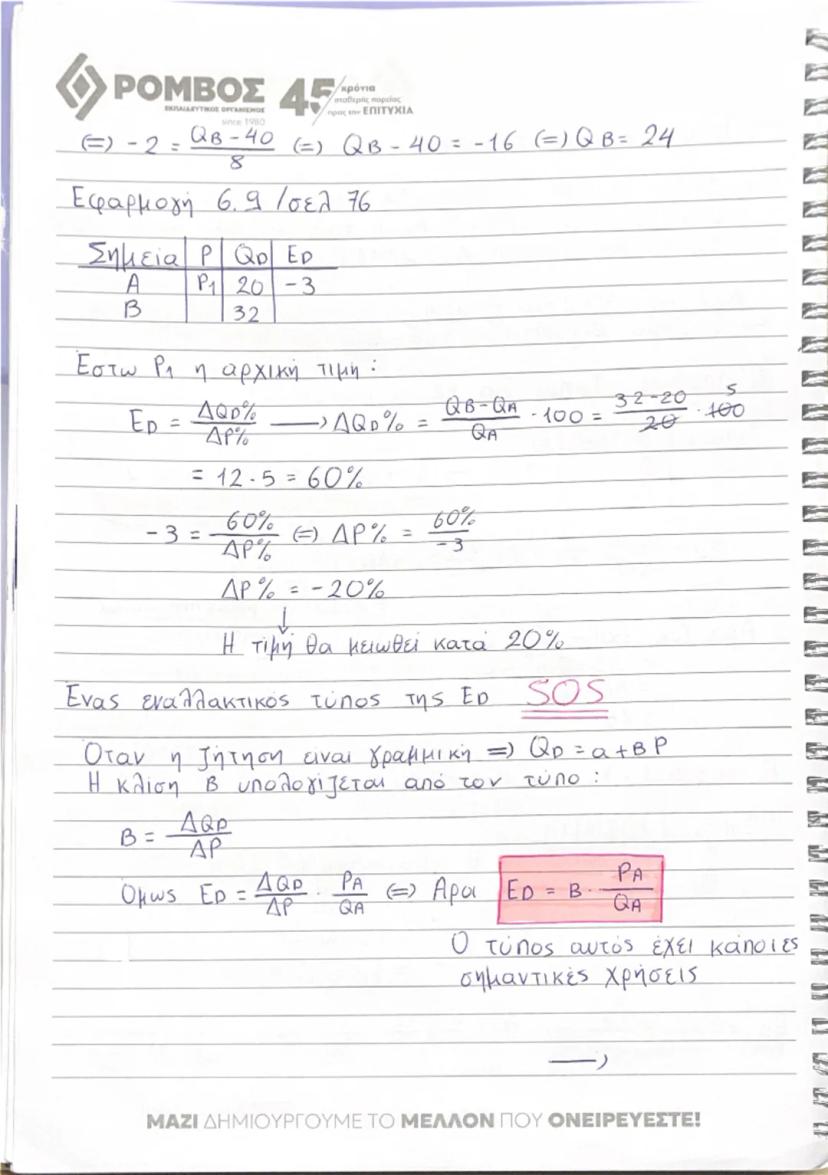 ΡΟΜΒΟΣ 45 χρόνια
ΕΚΠΑΙΔΕΥΤΙΚΟΣ ΟΡΓΑΝΙΣΜΟΣ σταθερής πορείας
since 1980 προς την ΕΠΙΤΥΧΙΑ
(=) -2 = (QB - 40)/8 (=) QB - 40 = -16 (=) QB = 24
Εφαρμογή 6.9 /σελ 76
Σημεία | P | QD | ED
A | P1 | 20 | -3
B | | 32 |
Έστω P1 η αρχική τιμή :
ED = ΔQD%/ΔP% ⟶ ΔQD% = (QB - QA)/QA · 100 = (32 - 20)/20 · 100 5
= 12 · 5 = 60%
-3 = 60%/ΔP% (=) ΔP% = 60%/-3
ΔP% = -20%
↓
Η τιμή θα μειωθεί κατά 20%
Ένας εναλλακτικός τύπος της ED SOS
Όταν η ζήτηση είναι γραμμική => QD = α + Β P
Η κλίση Β υπολογίζεται από τον τύπο :
Β = ΔQD/ΔP
Όμως ED = ΔQD/ΔP · PA/QA (=) Άρα ED = Β · PA/QA
Ο τύπος αυτός έχει κάποιες
σημαντικές χρήσεις
⟶
ΜΑΖΙ ΔΗΜΙΟΥΡΓΟΥΜΕ ΤΟ ΜΕΛΛΟΝ ΠΟΥ ΟΝΕΙΡΕΥΕΣΤΕ!